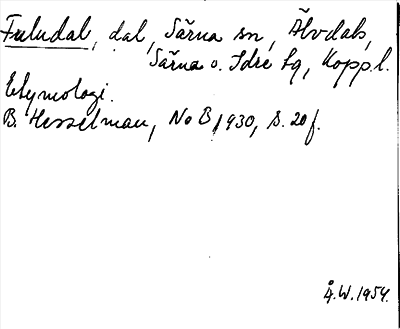 Fuludal, dal, Särna sn, Älvdals,
Särna o. Idre tg, Kopp. l.
Etymologi.
B. Hesselman, NoB 1930, s. 20 f.
Å. W. 1954.